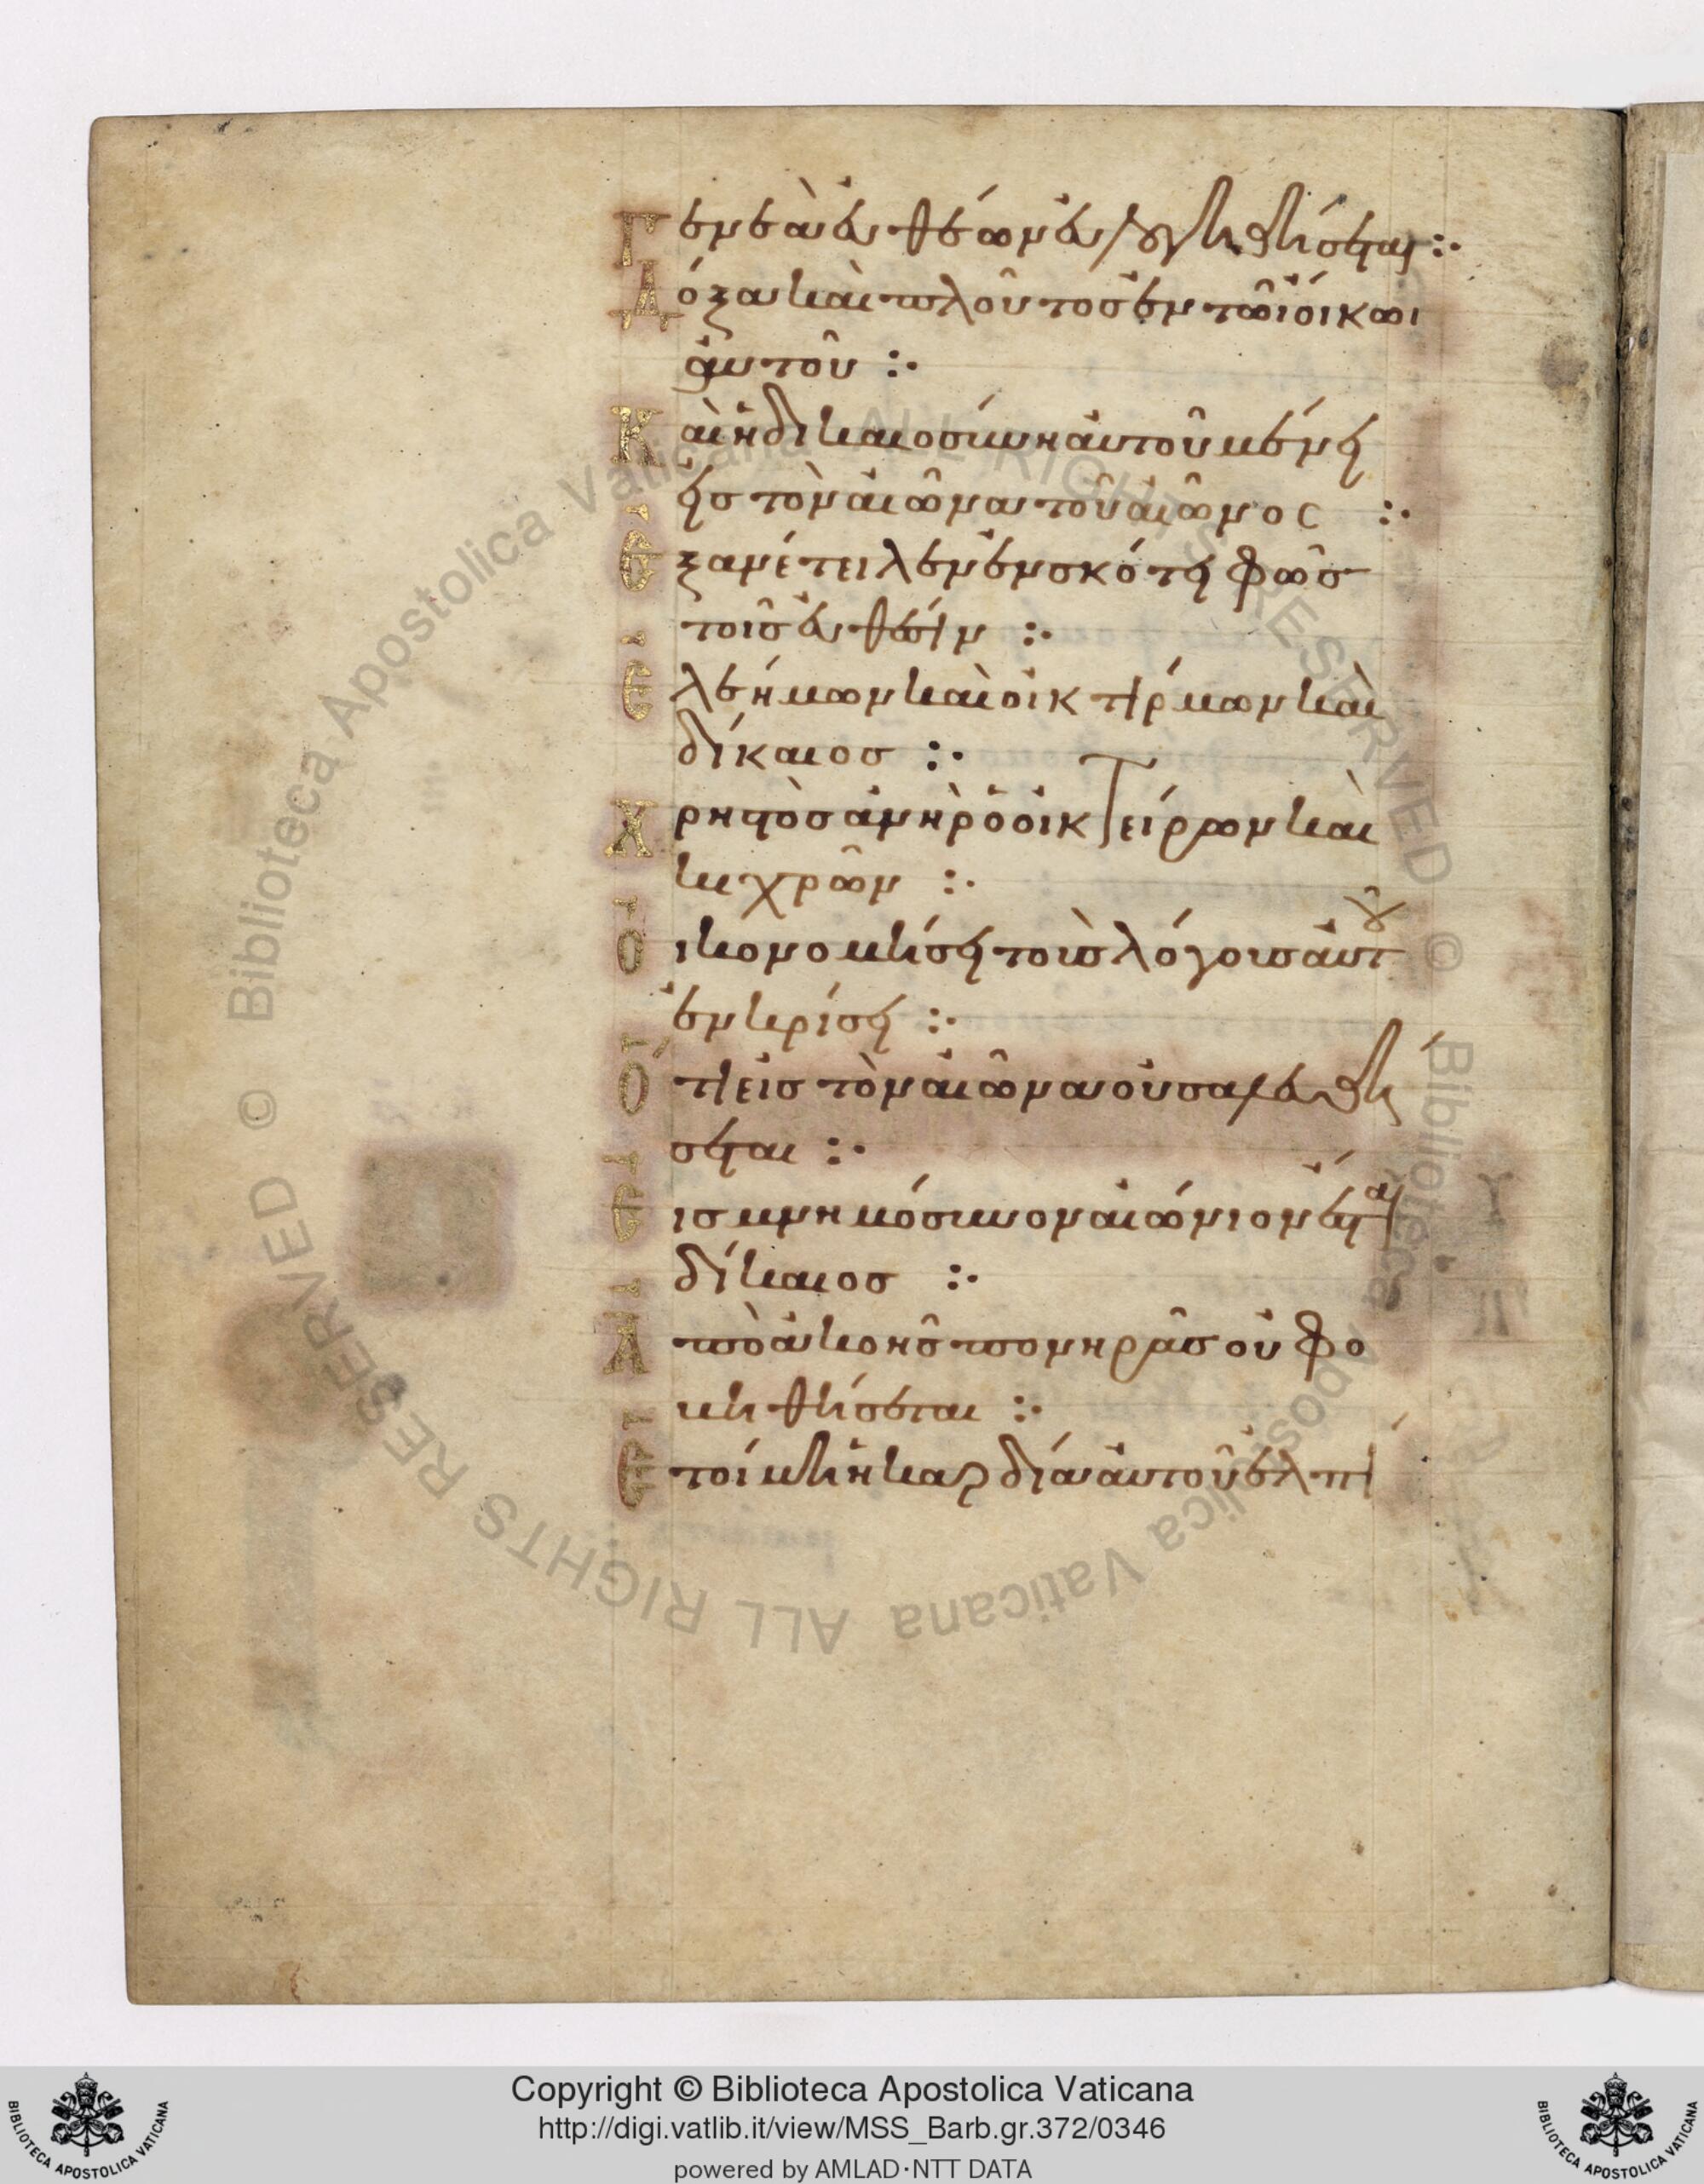 Γενεὰ ἐυθέων ἐυλογηθήσεται :·
Δόξα καὶ πλοῦτοσ ἐν τῶι ὄικωι
ἀυτοῦ :·
Καὶ ἡ δικαιοσύνη ἀυτοῦ μένει
εἰσ τὸν αἰῶνα τοῦ αἰῶνος :·
Ἐξανέτειλεν ἐν σκότει φῶσ
τοῖσ ἐυθέσιν :·
Ἐλεήμων καὶ οἰκτίρμων καὶ
δίκαιοσ :·
Χρηστὸσ ἀνὴρ ὁ οἰκτείρων καὶ
κιχρῶν :·
Οἰκονομήσει τοὺσ λόγουσ ἀυτοῦ
ἐν κρίσει :·
Ὅτι εἰσ τὸν αἰῶνα οὐ σαλευθή
σεται :·
Εἰσ μνημόσυνον αἰώνιον ἔσται
δίκαιοσ :·
Ἀπὸ ἀκοῆσ πονηρᾶσ οὐ φο
βηθήσεται :·
Ἑτοίμη ἡ καρδία ἀυτοῦ ἐλπί
© Biblioteca Apostolica Vaticana ALL RIGHTS RESERVED © Biblioteca Apostolica Vaticana ALL RIGHTS RESERVED
BIBLIOTECA APOSTOLICA VATICANA
Copyright © Biblioteca Apostolica Vaticana
http://digi.vatlib.it/view/MSS_Barb.gr.372/0346
powered by AMLAD·NTT DATA
BIBLIOTECA APOSTOLICA VATICANA